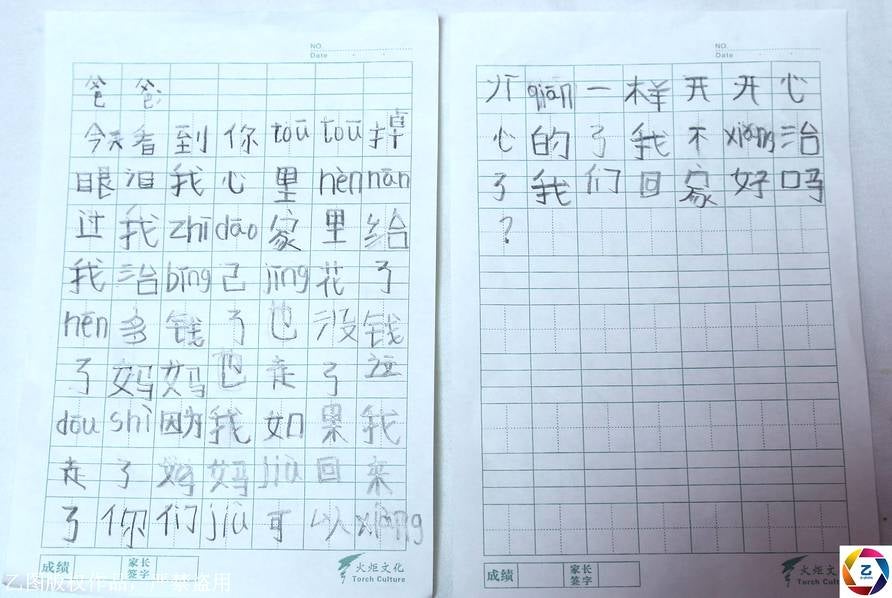 NO.
Date
爸爸
今天看到你tōu tōu掉
眼泪我心里hèn nān
过我zhī dāo家里给
我治bīng己jīng花了
hēn多钱了也没钱
了妈妈也走了这
dōu shì因为我如果我
走了妈妈jiù回来
了你们jiù可以xiàng
成绩
家长
签字
火炬文化
Torch Culture
乙图版权作品，严禁盗用
NO.
Date
qiān一样开开心
心的了我不xiǎng治
了我们回家好吗
？
成绩
家长
签字
火炬文化
Torch
乙